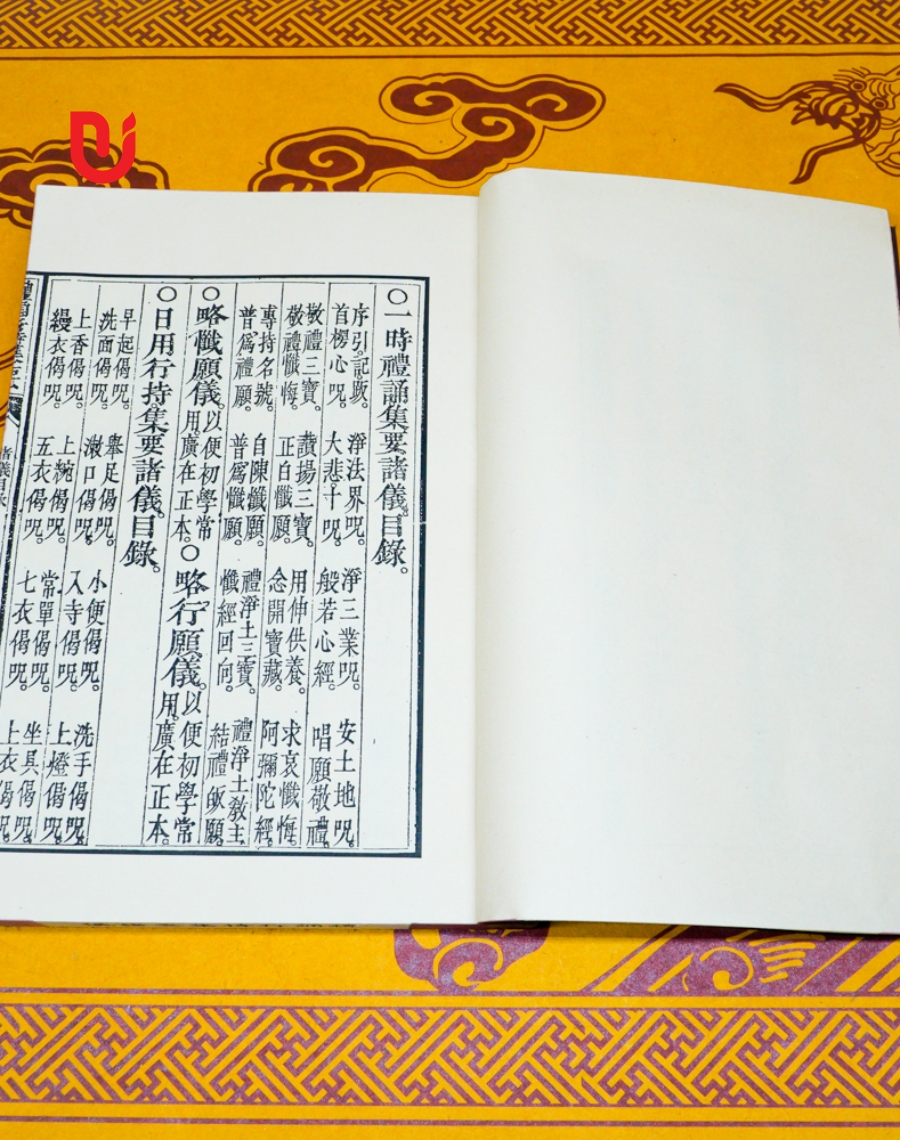 ○一時禮誦集要諸儀目錄。
序引。記䟦。 淨法界咒。 淨三業咒。 安土地咒。
首楞心咒。 大悲十咒。 般若心經。 唱願敬禮。
敬禮三寶。 讚揚三寶。 用伸供養。 求哀懺悔。
敬禮懺悔。 正白懺願。 念開寶藏。 阿彌陀經。
專持名號。 自陳懺願。 禮淨土三寶。 禮淨土教主。
普爲禮願。 普爲懺願。 懺經回向。 結禮皈願。
○略懺願儀。以便初學常用。廣在正本。○略行願儀。以便初學常用。廣在正本。
○日用行持集要諸儀目錄。
早起偈咒。 舉足偈咒。 小便偈咒。 洗手偈咒。
洗面偈咒。 漱口偈咒。 入寺偈咒。 上燈偈咒。
上香偈咒。 上椀偈咒。 常單偈咒。 坐具偈咒。
縵衣偈咒。 五衣偈咒。 七衣偈咒。 上衣偈咒。
諸儀目錄